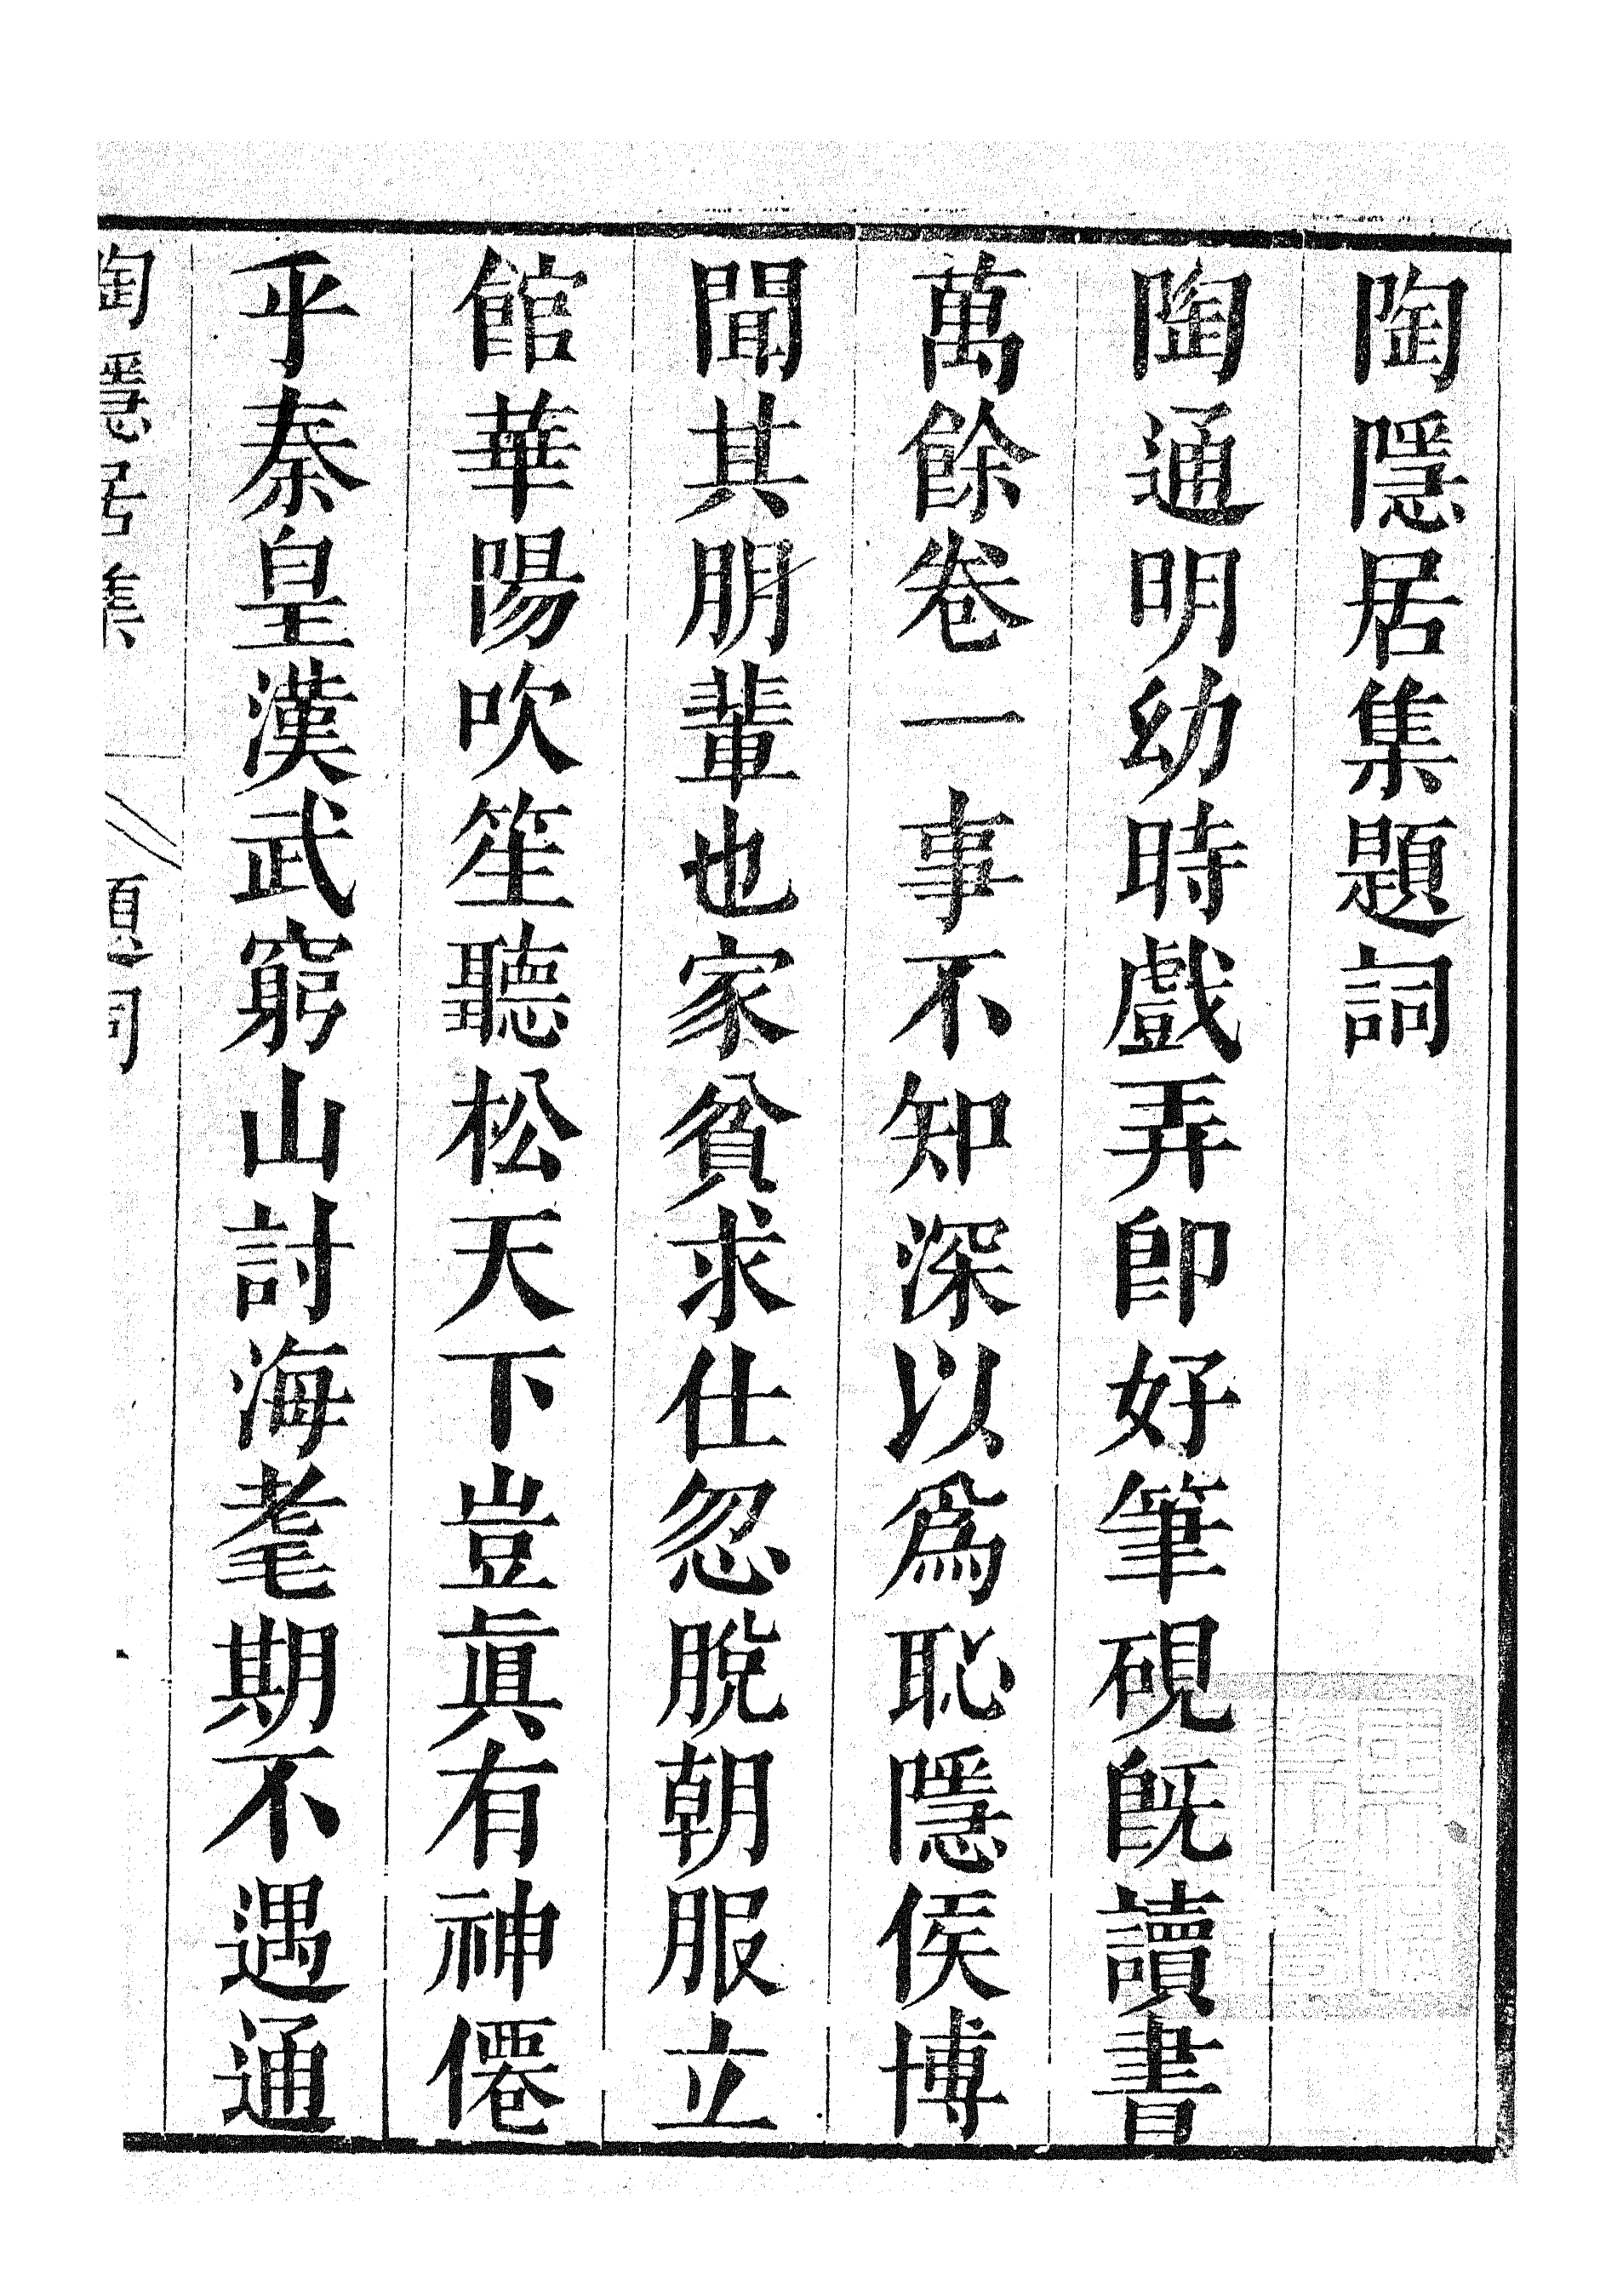 陶隱居集題詞
陶通明幼時戲弄卽好筆硯旣讀書
萬餘卷一事不知深以爲恥隱侯博
聞其朋輩也家貧求仕忽脫朝服立
館華陽吹笙聽松天下豈眞有神僊
乎秦皇漢武窮山討海耄期不遇通
陶隱居集
題詞